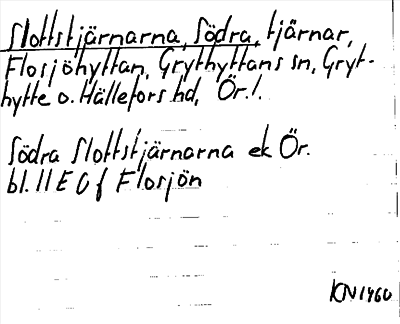 Slottstjärnarna, Södra, tjärnar,
Flosjöhyttan, Grythyttans sn, Gryt-
hytte o. Hällefors hd, Ör.l.
Södra Slottstjärnarna ek Ör.
bl. 11E 0f Flosjön
KN1960